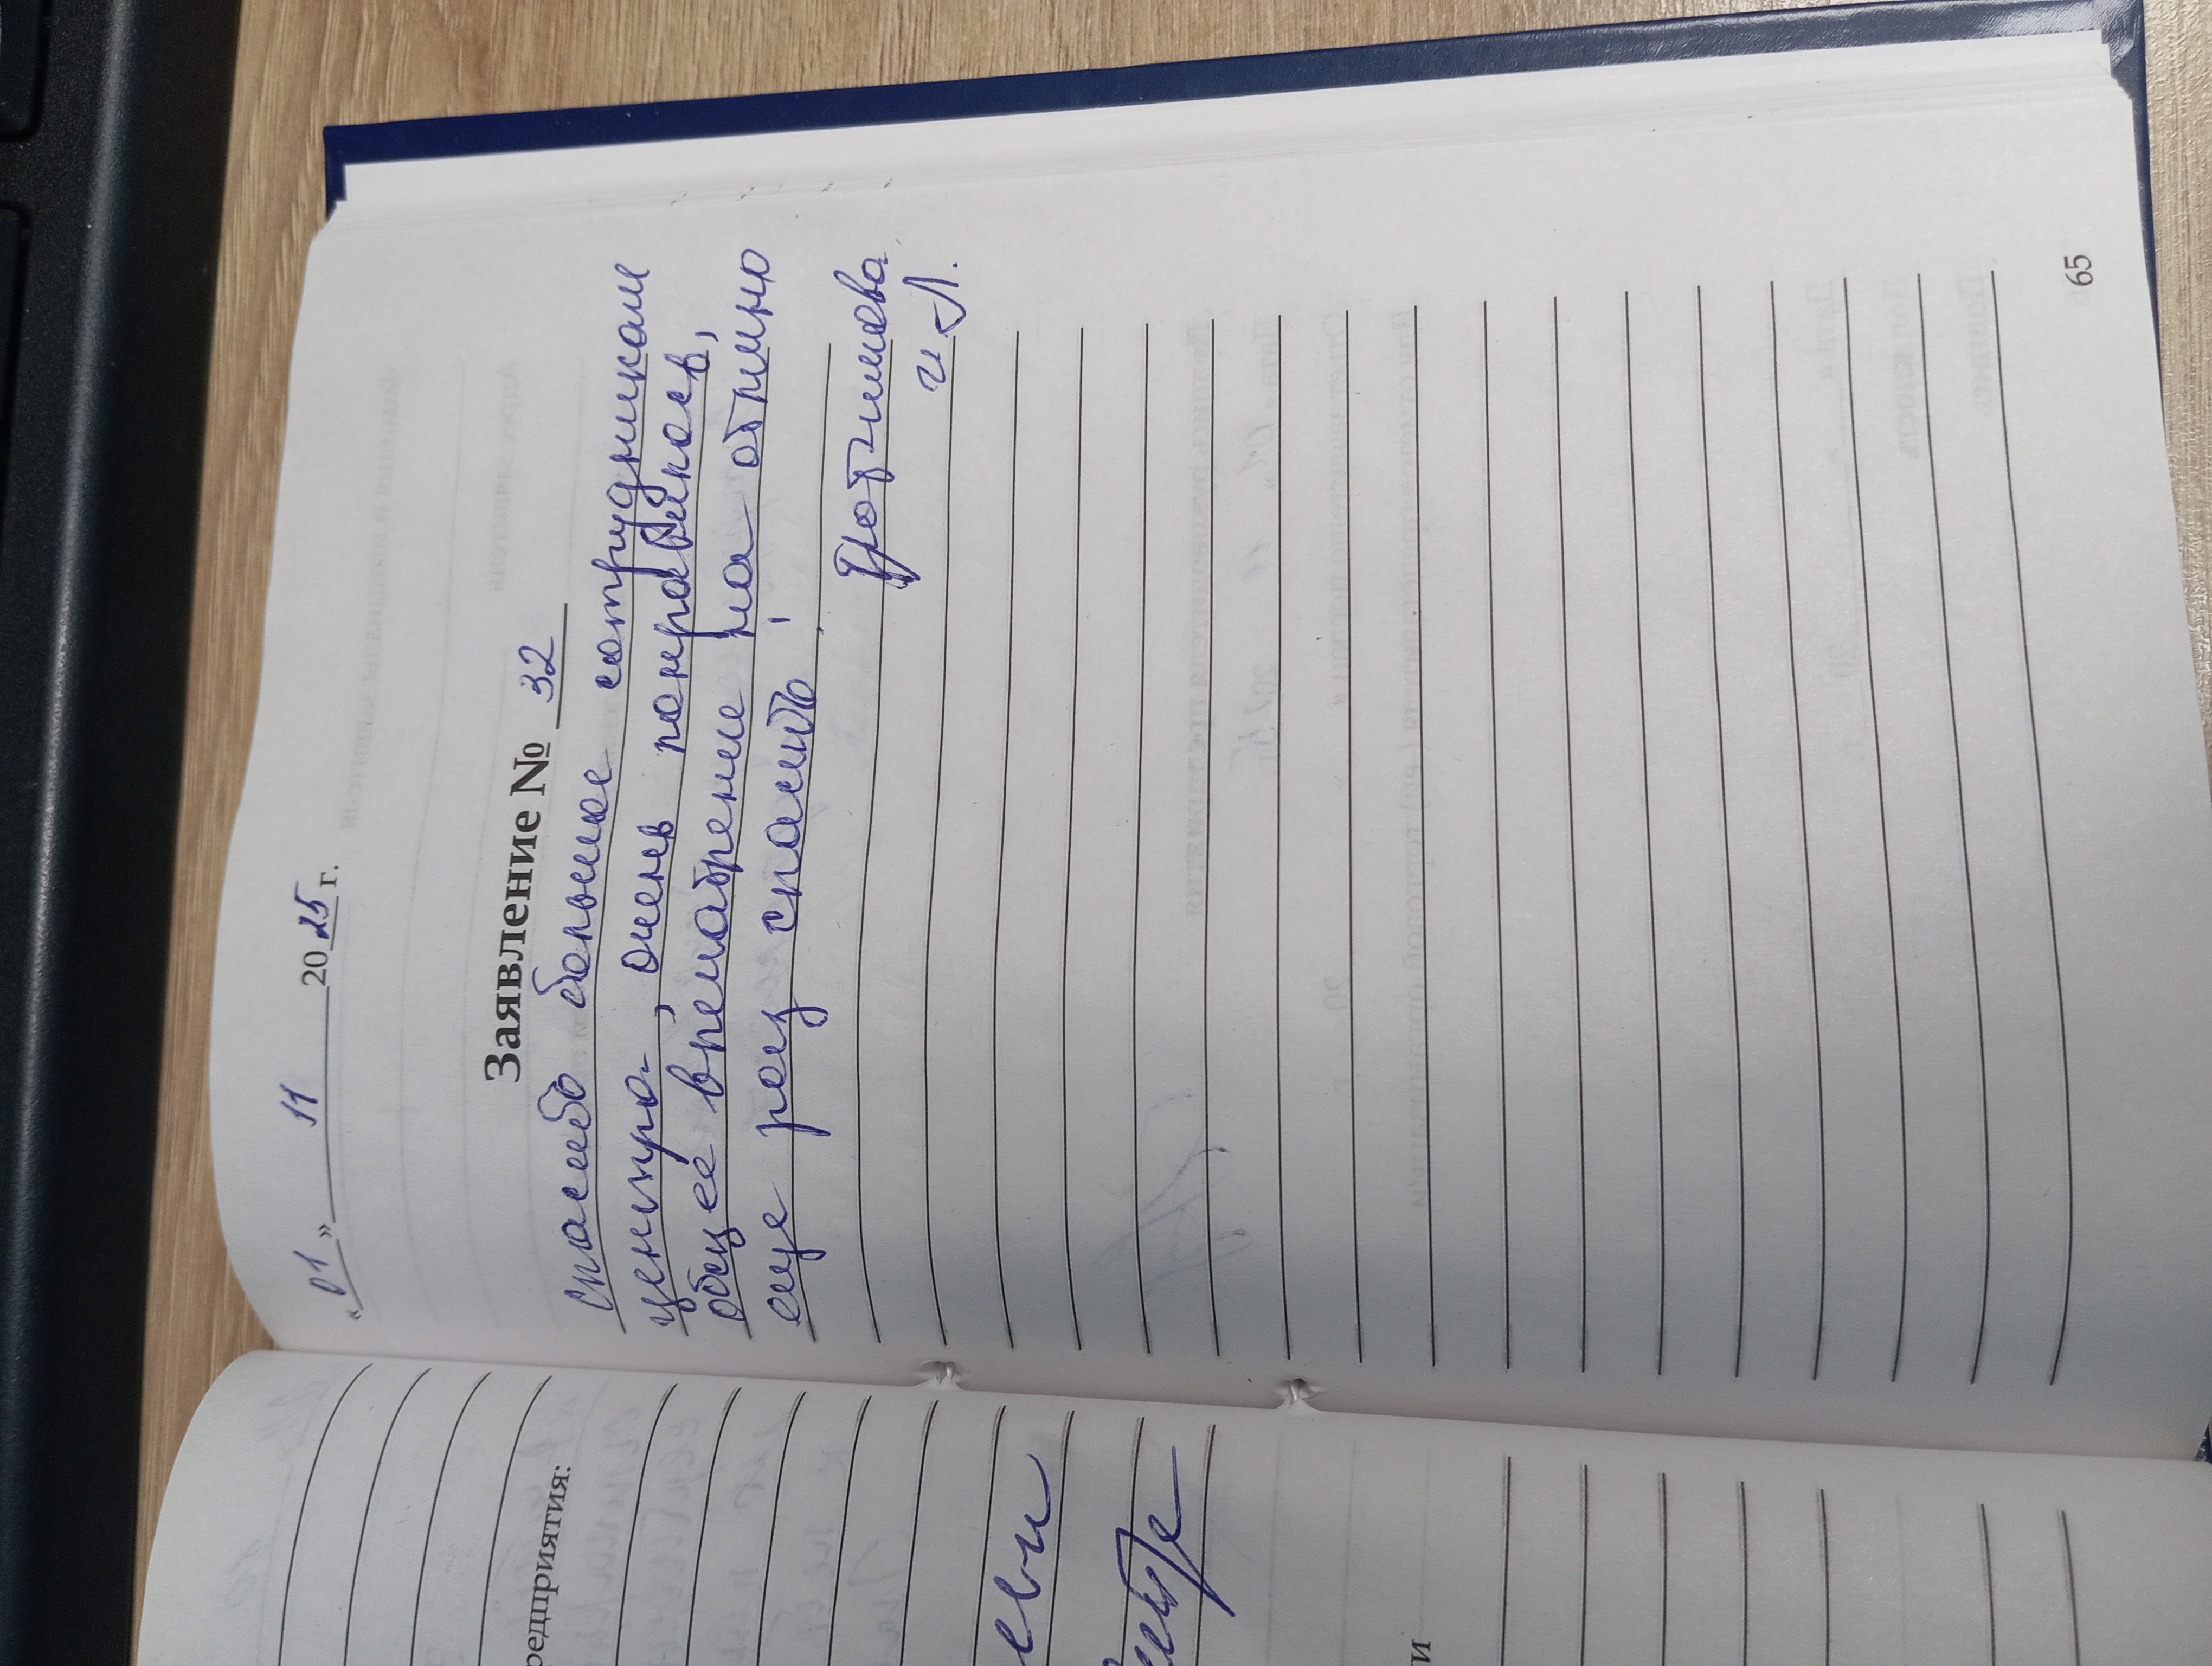 « 01 » 11 2025 г.
Заявление № 32
спасибо большое сотрудникам
центра, очень понравилось,
общее впечатление на отлично
еще раз спасибо!
И.Л.
65
редприятия: